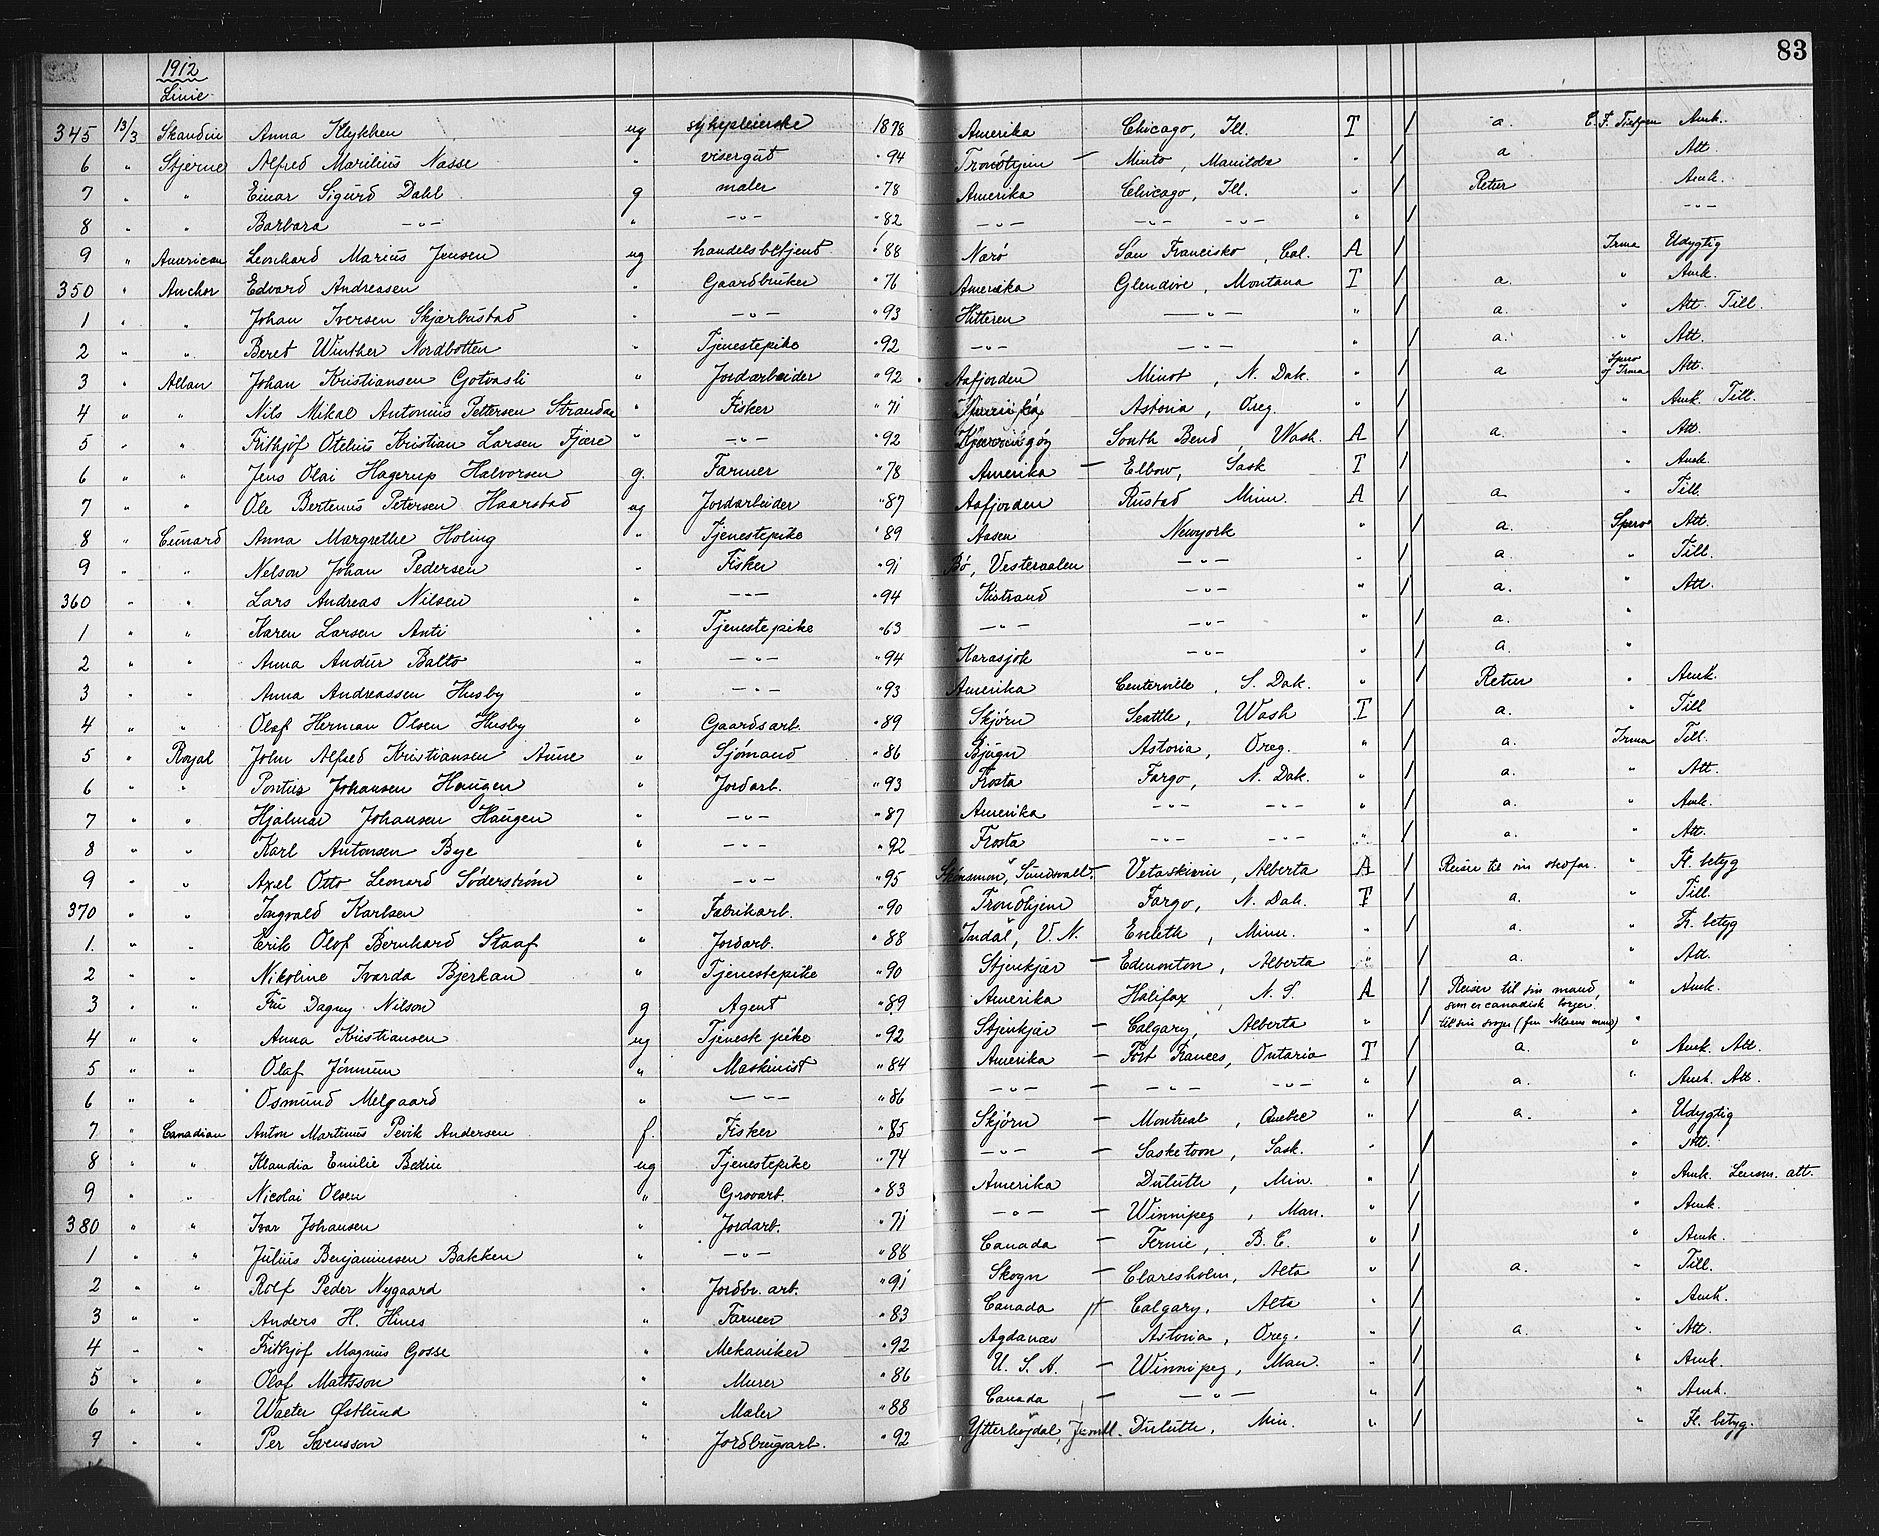 83
1912
Linie
345 13/3 Skandin Anna Klykken ug sykepleierske 1878 Amerika Chicago, Ill. T / a. C. F. Tietgen Amk.
6 " Stjerne Alfred Marilius Nasse " visergut " 94 Trondhjem — Minto, Manitoba " / a Att.
7 " " Einar Sigurd Dahl g maler " 78 Amerika Chicago, Ill. " / Retur Amk.
8 " " Barbara —"— " —"— " 82 —"— —"— —"— " / —"—
9 " American Leonhard Marius Jensen ug handelsbetjent " 88 Nærö San Francisko, Cal. A / Irma Udygtig
350 " Anchor Edvard Andreasen " Gaardbruker " 76 Amerika Glendive, Montana T / a. " Amk.
1 " " Johan Iversen Skjærbustad " —"— " 93 Hitteren —"— " / a. " Att. Till.
2 " " Beret Winther Nordbotten " Tjenestepike " 92 —"— —"— " / a. " Att.
3 " Allan Johan Kristiansen Gotvasli " Jordarbeider " 92 Aafjorden Minot, N. Dak. " / a Spero og Irma Att.
4 " " Nils Mikal Antonius Pettersen Strandaa " Fisker " 71 Astoria, Oreg. " / " Amk. Till.
5 " " Frithjof Otelius Kristian Larsen Fjære " —"— " 92 South Bend, Wash. A / a. " Att.
6 " " Jens Olai Hagerup Halvorsen g. Farmer " 78 Amerika — Elbow, Sask T / " Amk.
7 " " Ole Bertenus Petersen Haarstad ug Jordarbeider " 87 Aafjorden Rustad Minn. A / a " Till.
8 " Cunard Anna Margrethe Holing " Tjenestepike " 89 Aasen Newyork " / a. Spero Att.
9 " " Nelson Johan Pedersen " Fisker " 91 Bö, Vesteraalen —"— " / a. " Till.
360 " " Lars Andreas Nilsen " —"— " 94 Kistrand —"— " / a. " Att.
1 " " Karen Larsen Anti " Tjenestepike " 63 —"— —"— " / a. "
2 " " Anna Andur Balto " —"— " 94 Karasjok —"— " / a. "
3 " " Anna Andreassen Husby " —"— " 93 Amerika Centerville, S. Dak. " / Retur " Amk.
4 " " Olaf Herman Olsen Husby " Gaardsarb. " 89 Skjörn Seattle, Wash T / a. " Till
5 " Royal John Alfred Kristiansen Aune " Sjömand " 86 Bjugn Astoria, Oreg. " / a. Irma Till.
6 " " Pontus Johansen Haugen " Jordarb. " 93 Frosta Fargo, N. Dak. " / a. " Att.
7 " " Hjalmar Johansen Haugen " —"— " 87 Amerika —"— —"— " / a. " Amk.
8 " " Karl Antonsen Bye " —"— " 92 Frosta —"— —"— " / a. " Att.
9 " " Axel Otto Leonard Söderström " —"— " 95 Sundsvall. — Vetaskivin, Alberta A / Reiser til sin stedfar. " Fl. betyg
370 " " Ingvald Karlsen " Fabrikarb. " 90 Trondhjem Fargo, N. Dak. T / a. " Till.
1. " " Erik Olof Bernhard Staaf " Jordarb. " 88 Indal, V. N. Eveleth, Minn. " / a. " Fl. betyg
2 " " Nikoline Ivarda Bjerkan " Tjenestepike " 90 Stjenkjær — Edmonton, Alberta " / a. " Att.
3 " " Fru Dagny Nilson g Agent " 89 Amerika Halifax, N. S. A / Reiser til sin mand som er canadisk borger. " Amk.
4 " " Anna Kristiansen ug Tjenestepike " 92 Stjenkjær — Calgary, Alberta " / til sin svoger (fru Nilsens mand) "
5 " " Olaf Jönnum " Maskinist " 84 Amerika — Fort Frances, Ontario T / a. " Amk. Att.
6 " " Osmund Melgaard " —"— " 86 —"— — —"— —"— " / a. " Amk. Att.
7 " Canadian Anton Martinus Pevik Andersen f. Fisker " 85 Skjörn — Montreal, Quebec " / a. " Udygtig
8 " " Klaudia Emilie Betin ug Tjenestepike " 74 —"— — Sasketoon, Sask. " / " Att.
9 " " Nicolai Olsen " Grovarb. " 83 Amerika Duluth, Min. " / " Amk. Lensm. att.
380 " " Ivar Johansen " Jordarb. " 71 —"— — Winnipeg, Man. " / " Amk.
1 " " Julius Benjaminsen Bakken " —"— " 88 Canada — Fernie, B. C. " / " Amk.
2 " " Rolf Peder Nygaard " Jordbr. arb. " 91 Skogn — Claresholm, Alta " / a. " Till.
3 " " Anders H. Hines " Farmer " 83 Canada Calgary, Alta " / " Amk.
4 " " Frithjof Magnus Gosse " Mekaniker " 92 Agdanæs Astoria, Oreg. " / a. " Att.
5 " " Olaf Mattsson " Murer " 86 U. S. A. — Winnipeg, Man. " / " Amk.
6 " " Walter Østlund " Maler " 88 Canada — —"— " / " Amk.
7 " " Per Svensson " Jordbrugsarb. " 92 Ytterhøjdal, Jemtl. Duluth, Min. " / " Fl. betyg.